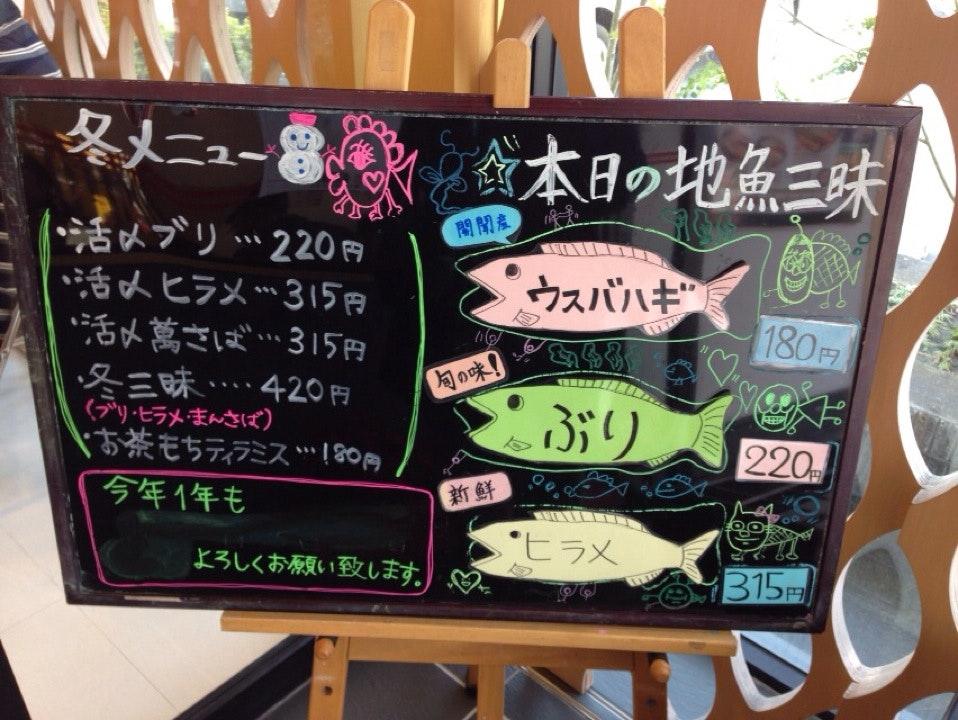 冬メニュー
・活〆ブリ…220円
・活〆ヒラメ…315円
・活〆萬さば…315円
・冬三昧‥‥420円
(ブリ・ヒラメ・まんさば)
・お茶もちティラミス…180円
今年1年も
よろしくお願い致します。
本日の地魚三昧
開聞産
ウスバハギ
180円
旬の味!
ぶり
220円
新鮮
ヒラメ
315円